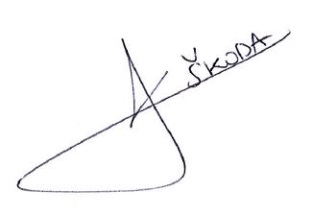 ŠKODA